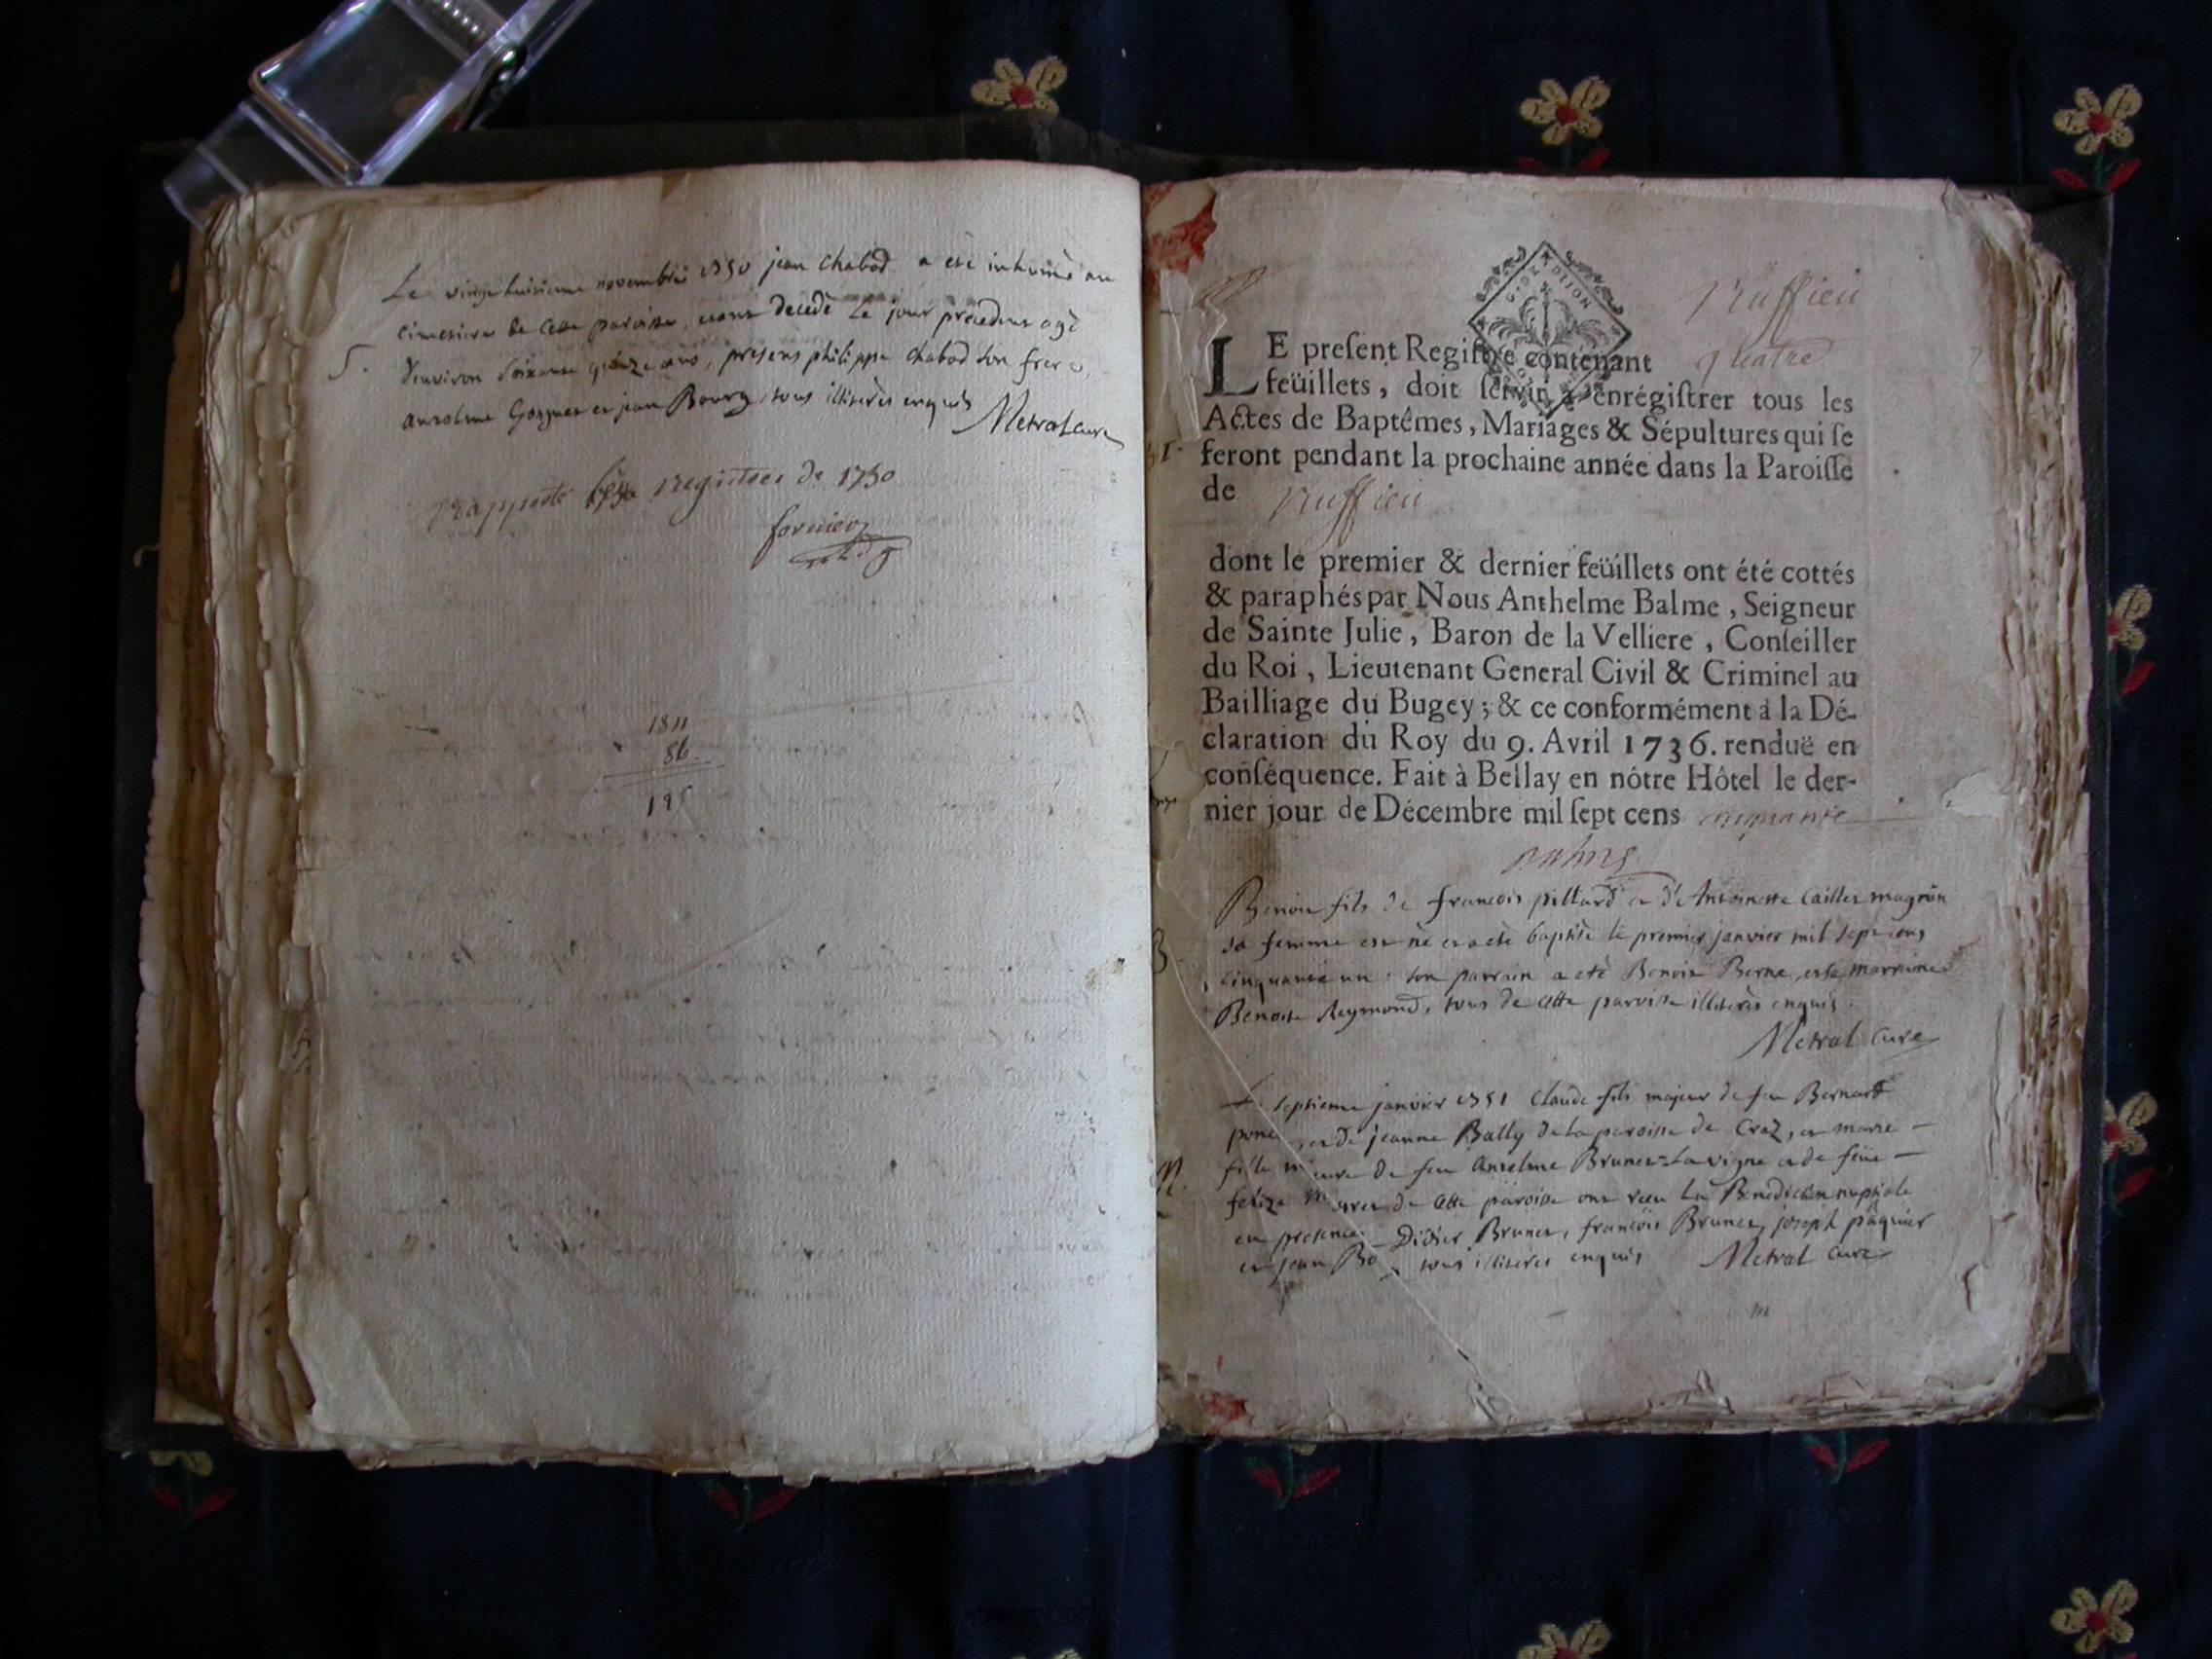 Le vingt huitieme novembre 1750 jean Chabod a eté inhumè au
cimetiere de cette paroisse, etant decedè Le jour précedent agé
S. d'environ soixante quinze ans, presens philippe Chabod son frere,
anselme et jean Bourg, tous illiterès enquis
Metral curé
rapporté registres de 1750
fornier
1811
86
195
G. DE DIION
Ruffieu
LE preſent Regiſtre contenant quatre
feüillets, doit ſervir à enrégiſtrer tous les
Actes de Baptêmes, Mariages & Sépultures qui ſe
feront pendant la prochaine année dans la Paroiſſe
de Ruffieu
dont le premier & dernier feüillets ont été cottés
& paraphés par Nous Anthelme Balme, Seigneur
de Sainte Julie, Baron de la Velliere, Conſeiller
du Roi, Lieutenant General Civil & Criminel au
Bailliage du Bugey; & ce conformément à la Dé-
claration du Roy du 9. Avril 1736. renduë en
conſéquence. Fait à Bellay en nôtre Hôtel le der-
nier jour de Décembre mil ſept cens cinquante
B Benoit fils de francois pillard et d'Antoinette Caillet magnin
sa femme est né et a eté baptisé le premier janvier mil sept cens
cinquante un : son parrain a eté Benoit Berne, et sa marraine
Benoite Reymond, tous de cette paroisse illiterès enquis.
Metral Curé
Le septieme janvier 1751 Claude fils majeur de feu Bernard
et de jeanne Bally de la paroisse de Craz, et marie
M. fille de feu Anselme Brunet-La vigne et de feüe
de cette paroisse ont recu La Benediction nuptiale
en presence Didier Brunet, francois Brunet, joseph paquier
et jean tous illiteres enquis Metral Curé